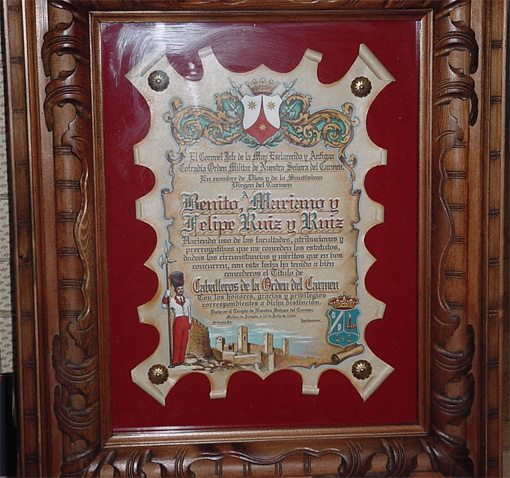 El Coronel Jefe de la Muy Esclarecida y Antigua
Cofradía Orden Militar de Nuestra Señora del Carmen.
En nombre de Dios y de la Santísima
Virgen del Carmen
A
Benito, Mariano y
Felipe Ruiz y Ruiz
Haciendo uso de las facultades, atribuciones y
prerrogativas que me conceden los estatutos,
dadas las circunstancias y méritos que en vos
concurren, con esta fecha ha tenido a bien
concederos el Título de
Caballeros de la Orden del Carmen
Con los honores, gracias y privilegios
correspondientes a dicha distinción.
Dado en el Templo de Nuestra Señora del Carmen
Molina de Aragón, a 16 de Julio de